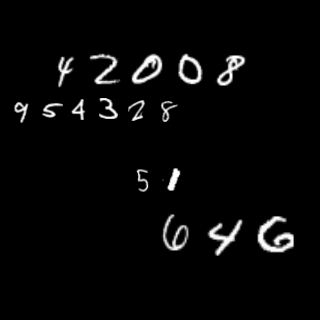 42008
954328
51
646